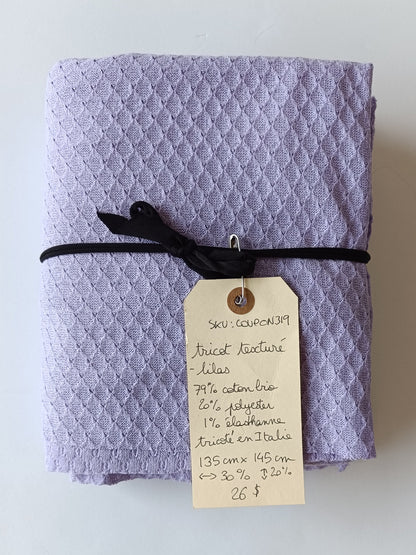 SKU: COUPON319
tricot texturé
- lilas
79% coton bio
20% polyester
1% élasthanne
tricoté en Italie
135 cm x 145 cm
↔ 30% ↕ 20%
26 $